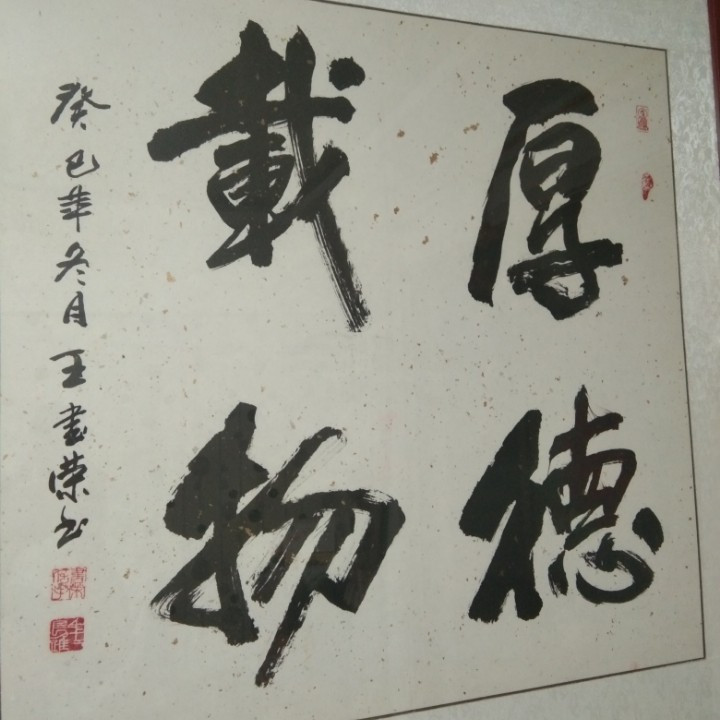 厚德
載物
癸巳年冬月王書榮书